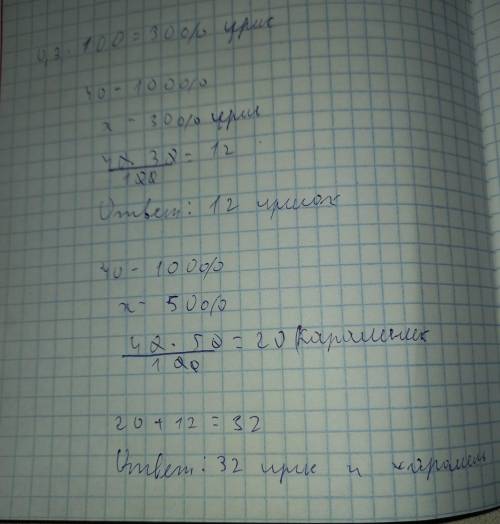 0,3 · 100 = 30% ирис
40 - 100%
x - 30% ирис
40 · 30 = 12
100
Ответ: 12 ирисок
40 - 100%
x - 50%
40 · 50 = 20 Карамелек
100
20 + 12 = 32
Ответ: 32 ирис и карамель